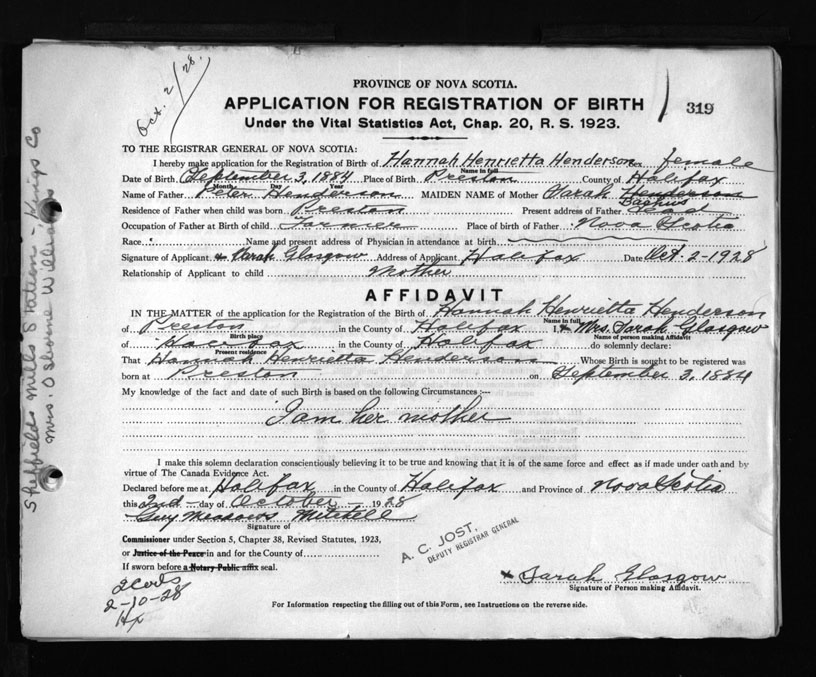 Oct. 2/28.
PROVINCE OF NOVA SCOTIA.
APPLICATION FOR REGISTRATION OF BIRTH
319
Under the Vital Statistics Act, Chap. 20, R. S. 1923.
TO THE REGISTRAR GENERAL OF NOVA SCOTIA:
I hereby make application for the Registration of Birth of Hannah Henrietta Henderson female
Name in full
Date of Birth September 3, 1884 Place of Birth Preston County of Halifax
Month Day Year
Name of Father Peter Henderson MAIDEN NAME of Mother Sarah Henderson
Residence of Father when child was born Preston Present address of Father Dead
Occupation of Father at Birth of child Farmer Place of birth of Father Nova Scotia
Race Name and present address of Physician in attendance at birth
Signature of Applicant Sarah Glasgow Address of Applicant Halifax Date Oct. 2-1928
Relationship of Applicant to child Mother
AFFIDAVIT
IN THE MATTER of the application for the Registration of the Birth of Hannah Henrietta Henderson
Name in full
of Preston in the County of Halifax I, Mrs. Sarah Glasgow
Birth place Name of person making Affidavit
of Halifax in the County of Halifax do solemnly declare:
Present residence
That Hannah Henrietta Henderson Whose Birth is sought to be registered was
born at Preston on September 3, 1884
My knowledge of the fact and date of such Birth is based on the following Circumstances :—
I am her mother
I make this solemn declaration conscientiously believing it to be true and knowing that it is of the same force and effect as if made under oath and by
virtue of The Canada Evidence Act.
Declared before me at Halifax in the County of Halifax and Province of Nova Scotia
this 2nd day of October - 1928
Guy Meadows Mitchell
Signature of
Commissioner under Section 5, Chapter 38, Revised Statutes, 1923,
or Justice of the Peace in and for the County of
If sworn before a Notary Public affix seal.
A. C. JOST,
DEPUTY REGISTRAR GENERAL
2 Certs
2-10-28
Hx
Sarah Glasgow
Signature of Person making Affidavit.
For Information respecting the filling out of this Form, see Instructions on the reverse side.
Sheffields Mills Station, Kings Co
Mrs. Osborne Williams